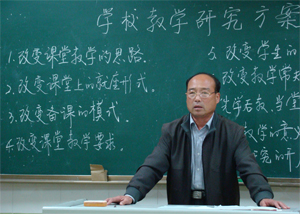 学校教学研究方案
1.改变课堂教学的思路.
2.改变课堂上的就座形式.
3.改变备课的模式.
4.改变课堂教学要求.
5.改变学生的
改变教学常
教 当堂
教学的
的开